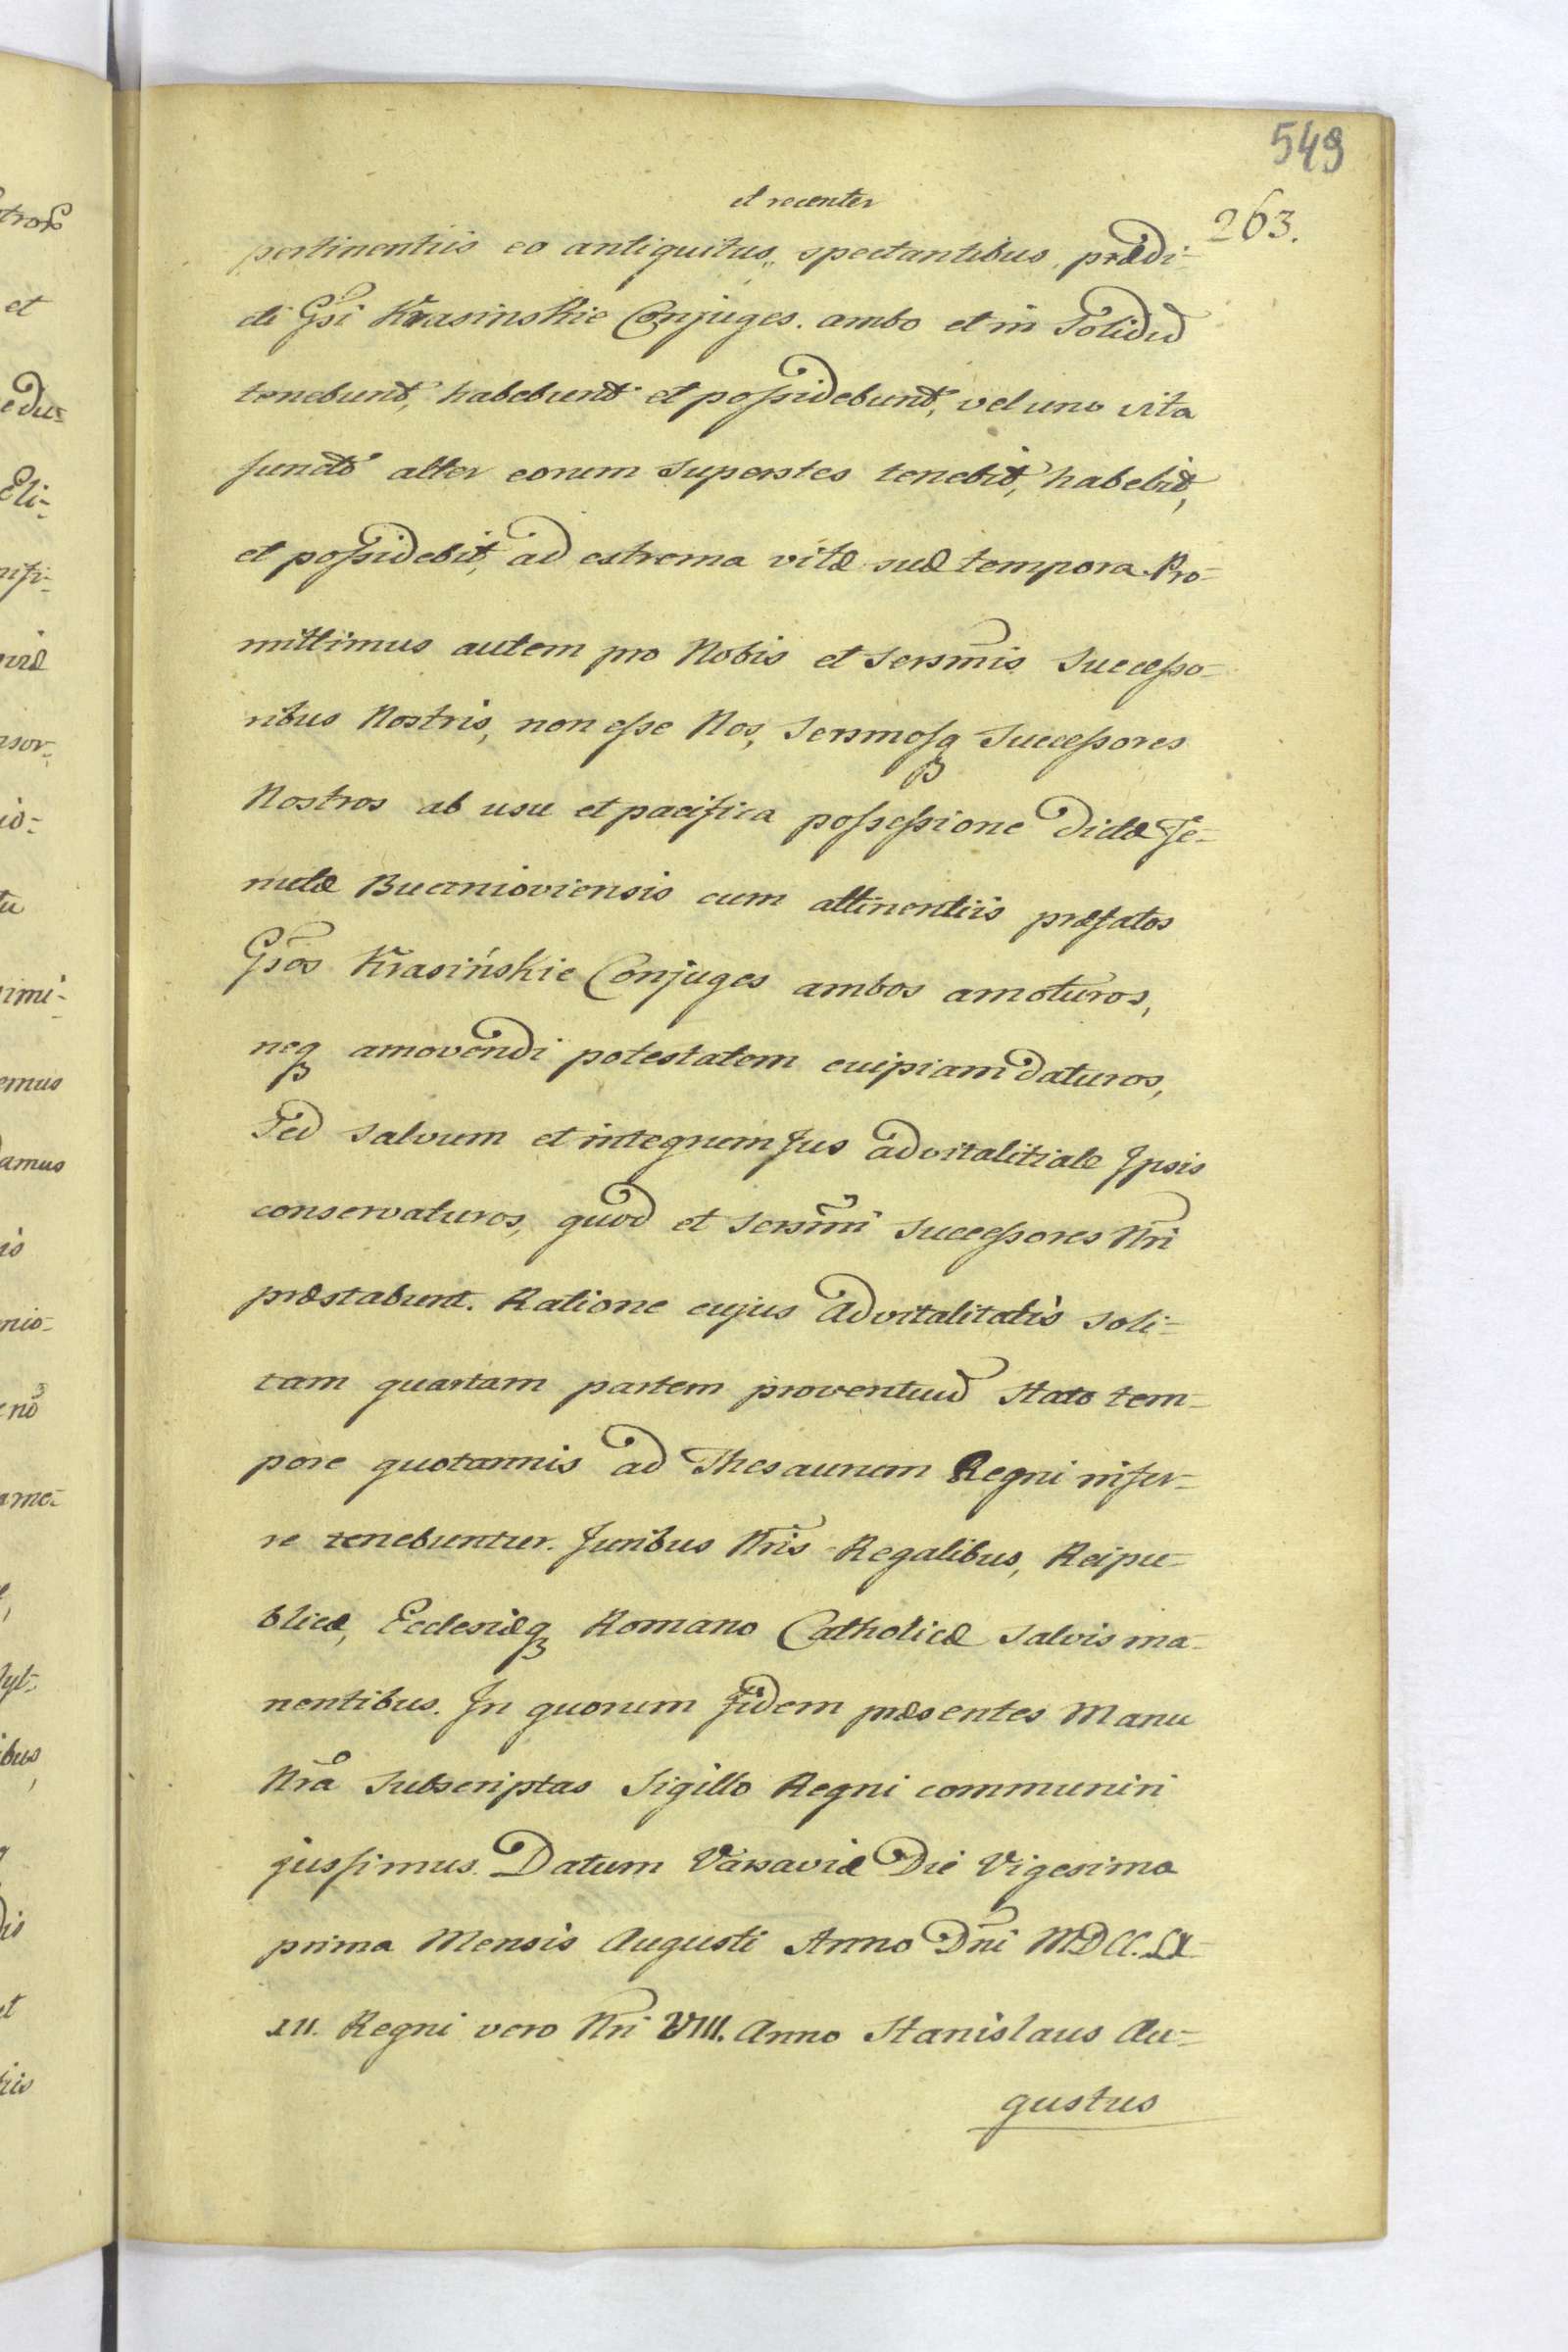 549
263.
et recenter
pertinentiis eo antiquitus,, spectantibus, prædi-
cti Gsi Krasinskie Conjuges. ambo et in Solidũ
tenebunt, habebunt et possidebunt, vel uno vita
functo alter eorum Superstes tenebit, habebit,
et possidebit, ad extrema vitæ suæ tempora. Pro-
mittimus autem pro Nobis et Sersmis Successo-
ribus Nostris, non esse Nos, Sersmosq Successores
Nostros ab usu et pacifica possessione dictæ Te-
nutæ Bucnioviensis cum attinentiis præfatos
Gsos Krasińskie Conjuges ambos amoturos,
neq amovendi potestatem cuipiam daturos,
Sed Salvum et integrum Jus advitalitiale Ipsis
conservaturos, quod et Sersmi Successores Nri
præstabunt. Ratione cujus Advitalitatis Soli-
tam quartam partem proventuũ Stato tem-
pore quotannis ad Thesaurum Regni infer-
re tenebuntur. Juribus Nris Regalibus, Reipu-
blicæ, Ecclesiæq Romano Catholicæ Salvis ma-
nentibus. In quorum fidem præsentes Manu
Nra Subscriptas Sigillo Regni communiri
jussimus. Datum Varsaviæ Die Vigesima
prima Mensis Augusti Anno Dni MDCC.LX-
XII. Regni vero Nri VIII. Anno Stanislaus Au-
gustus